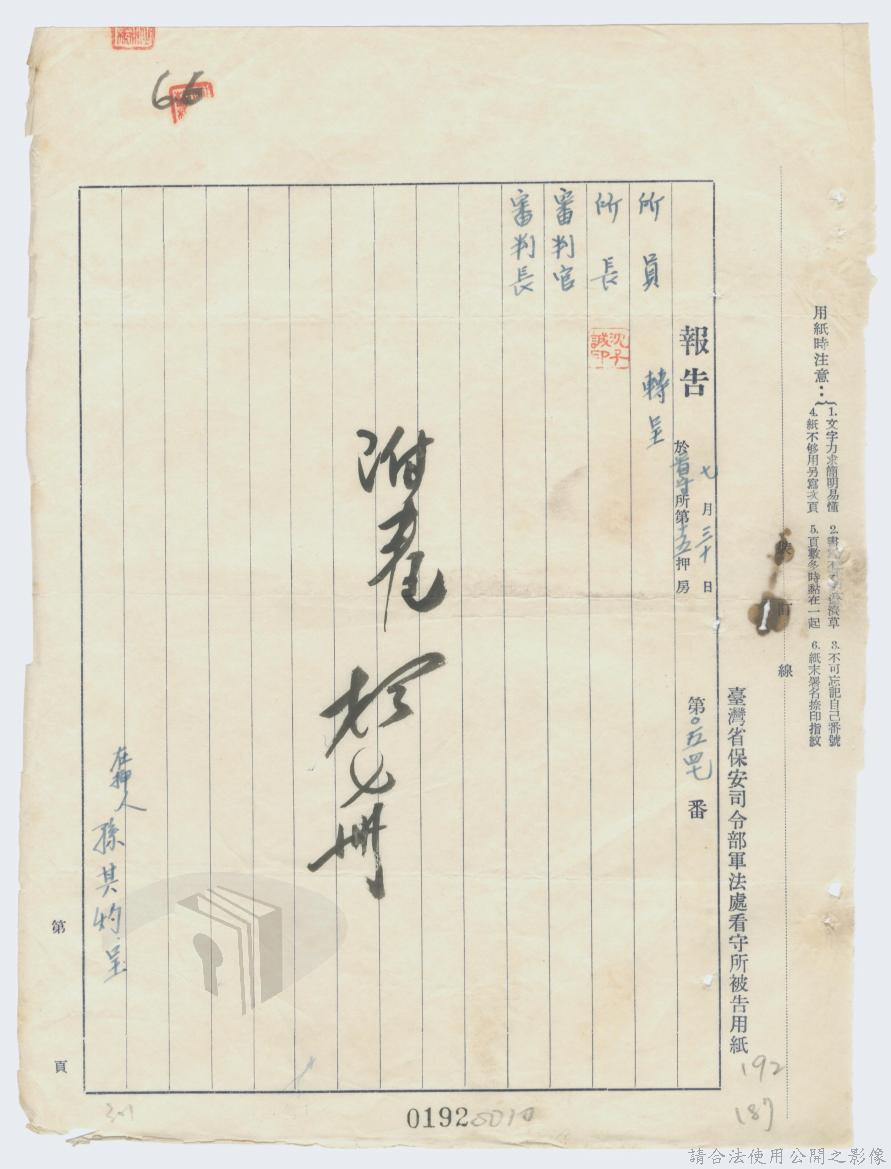 用紙時注意：
1. 文字力求簡明易懂
2. 
3. 不可忘記自己番號
4. 紙不够用另寫次頁
5. 頁數多時黏在一起
6. 紙末署名捺印指紋
訂
線
臺灣省保安司令部軍法處看守所被告用紙
報告
七月三十日
於看守所第十五押房
第〇五四七番
所員
轉呈
所長
沈子誠印
審判官
審判長
附卷
七冊
在押人 孫其灼 呈
第 頁
66
0192
192
187
請合法使用公開之影像